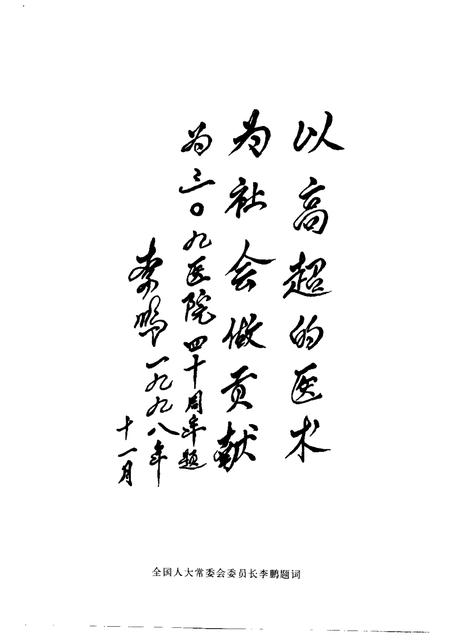 以高超的医术
为社会做贡献
为三〇九医院四十周年题
李鹏一九九八年
十一月
全国人大常委会委员长李鹏题词